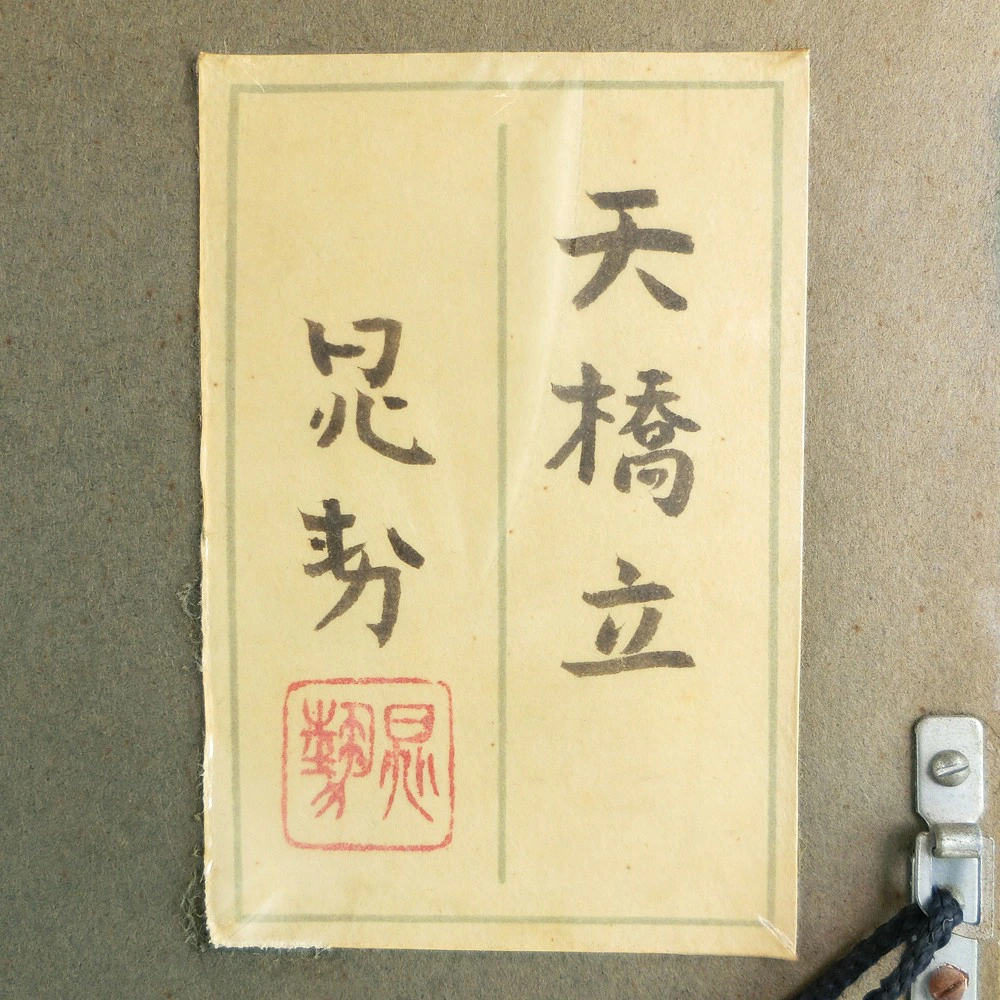 天橋立
晁勢
晁勢